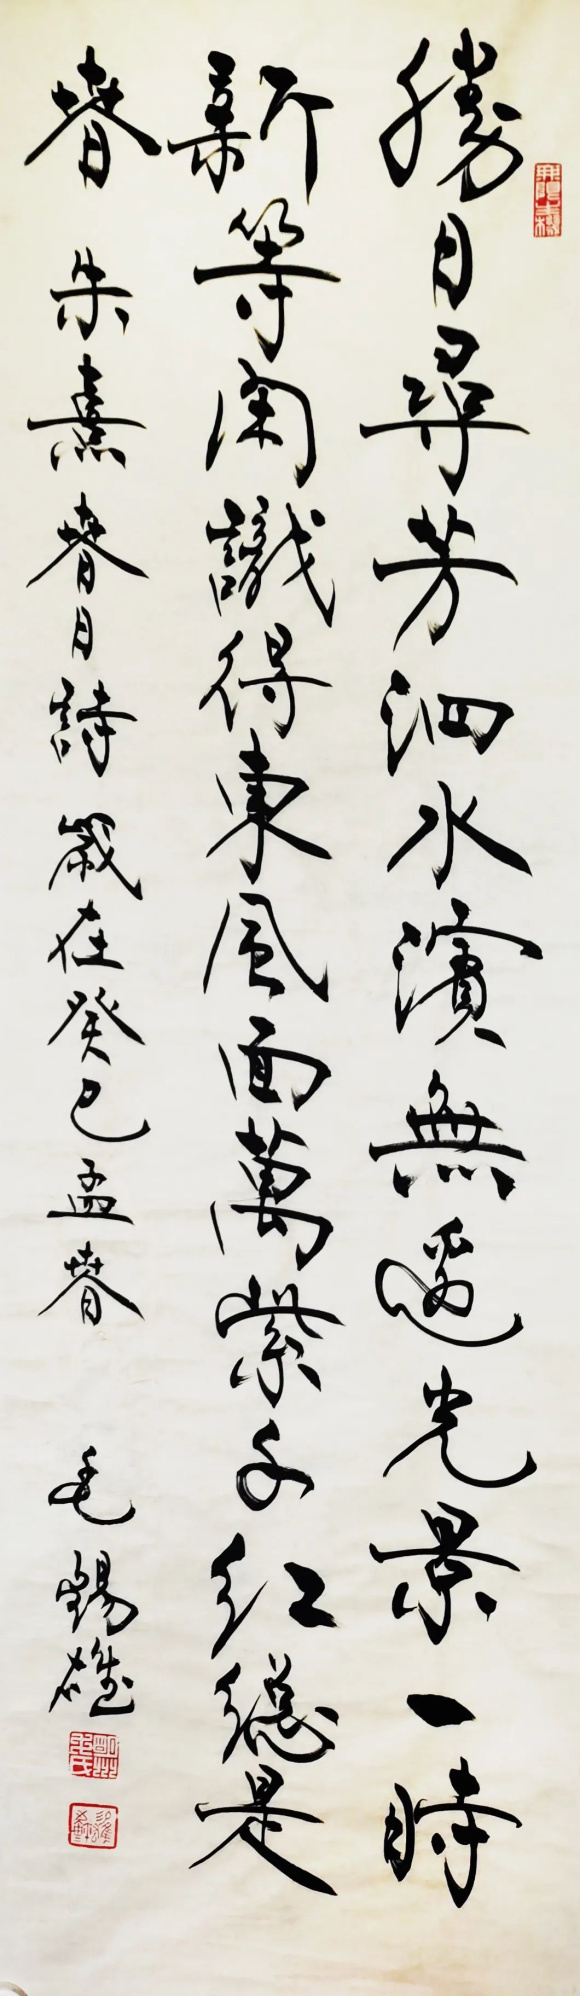 勝日尋芳泗水濱無邊光景一時
新等閑識得東風面萬紫千紅總是
春 朱熹春日詩 歲在癸巳孟春 毛錫雄